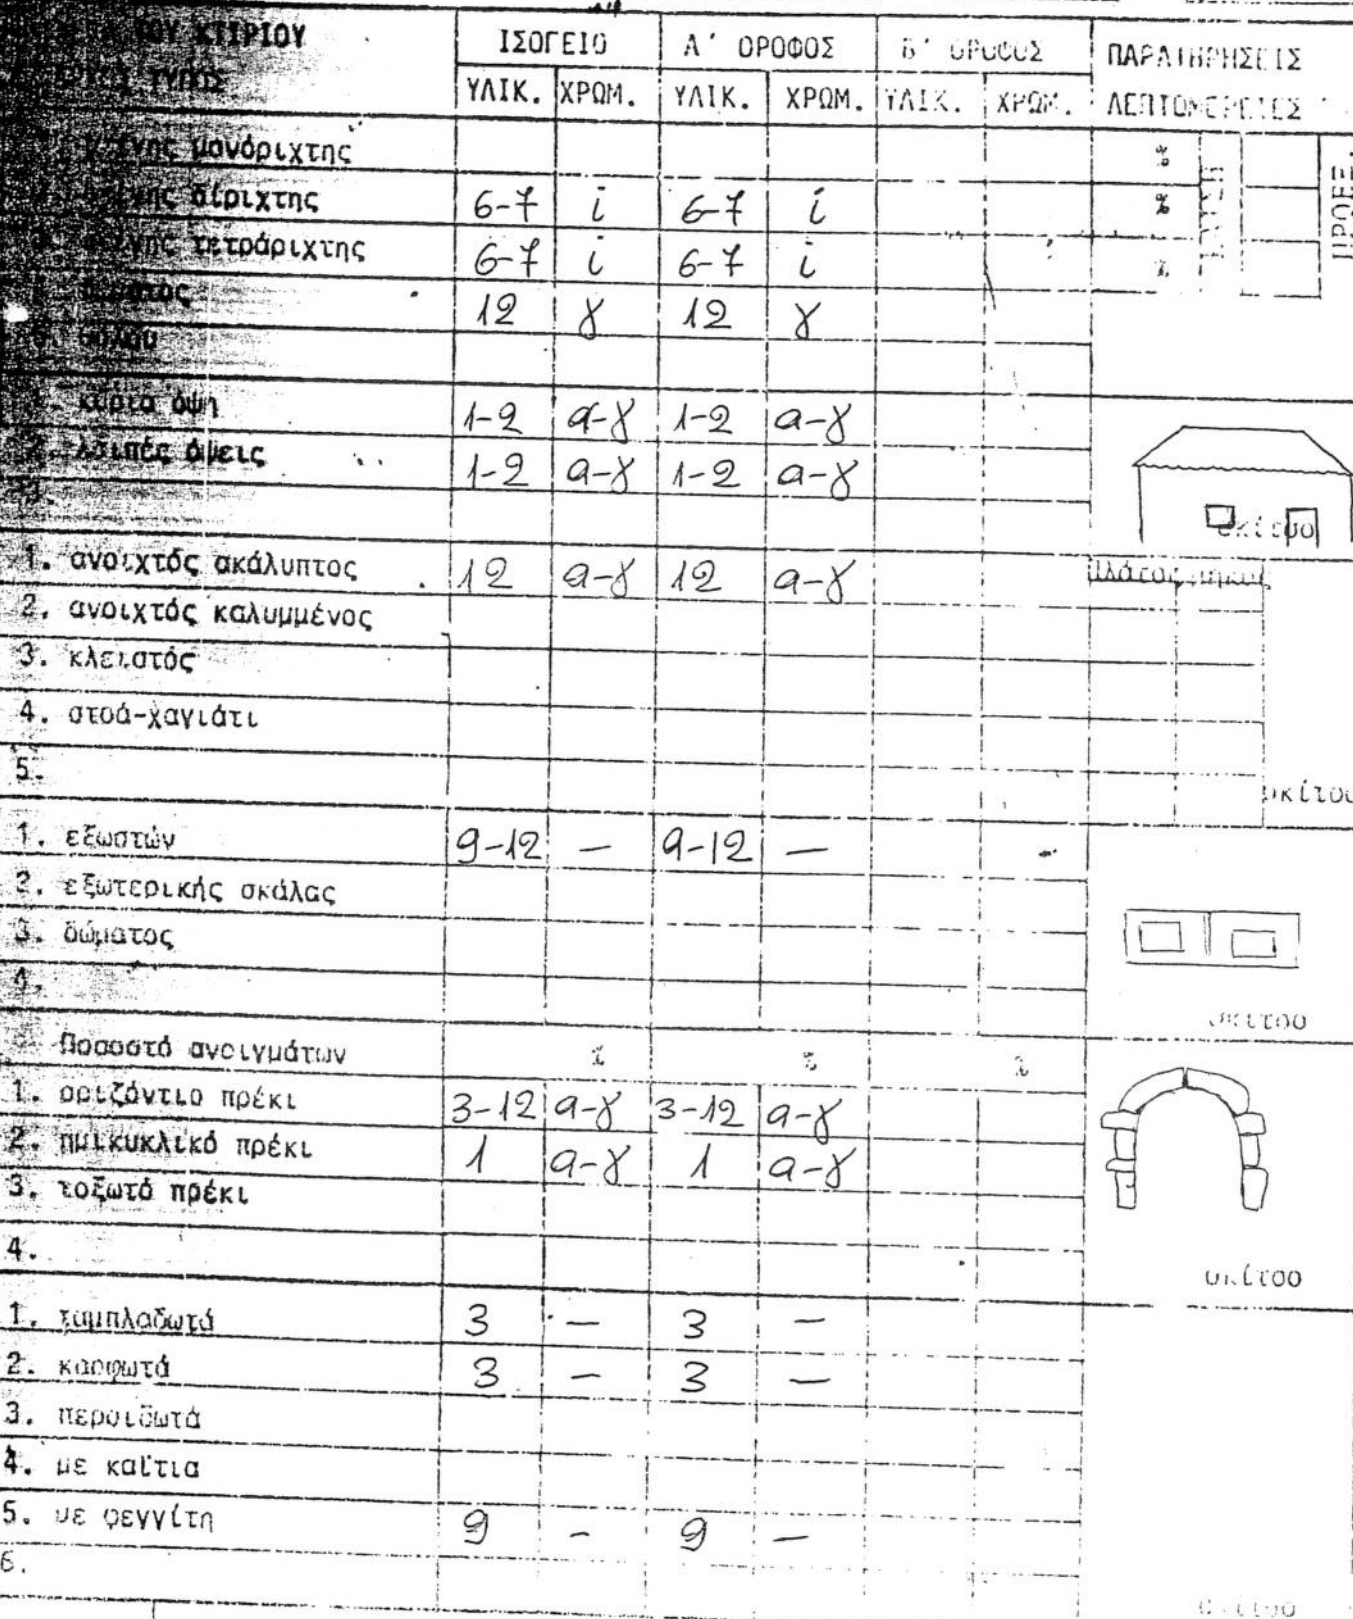 ΤΟΥ ΚΤΙΡΙΟΥ ΙΣΟΓΕΙΟ Α΄ ΟΡΟΦΟΣ Β΄ ΟΡΟΦΟΣ ΠΑΡΑΤΗΡΗΣΕΙΣ
ΥΛΙΚ. ΧΡΩΜ. ΥΛΙΚ. ΧΡΩΜ. ΥΛΙΚ. ΧΡΩΜ. ΛΕΠΤΟΜΕΡΕΙΕΣ
μονόριχτης % ΠΡΟΕΞ.
δίριχτης 6-7 i 6-7 i %
τετράριχτης 6-7 i 6-7 i %
12 γ 12 γ
κύρια όψη 1-2 α-γ 1-2 α-γ
λοιπές όψεις 1-2 α-γ 1-2 α-γ
σκίτσο
1. ανοιχτός ακάλυπτος 12 α-γ 12 α-γ πλάτος μήκος
2. ανοιχτός καλυμμένος
3. κλειστός
4. στοά-χαγιάτι
5.
σκίτσο
1. εξωστών 9-12 — 9-12 —
2. εξωτερικής σκάλας
3. δώματος
4.
σκίτσο
Ποσοστό ανοιγμάτων % % %
1. οριζόντιο πρέκι 3-12 α-γ 3-12 α-γ
2. ημικυκλικό πρέκι 1 α-γ 1 α-γ
3. τοξωτό πρέκι
4.
σκίτσο
1. ταμπλαδωτά 3 — 3 —
2. καρφωτά 3 — 3 —
3. περσιδωτά
4. με καΐτια
5. με φεγγίτη 9 - 9 —
6.
σκίτσο